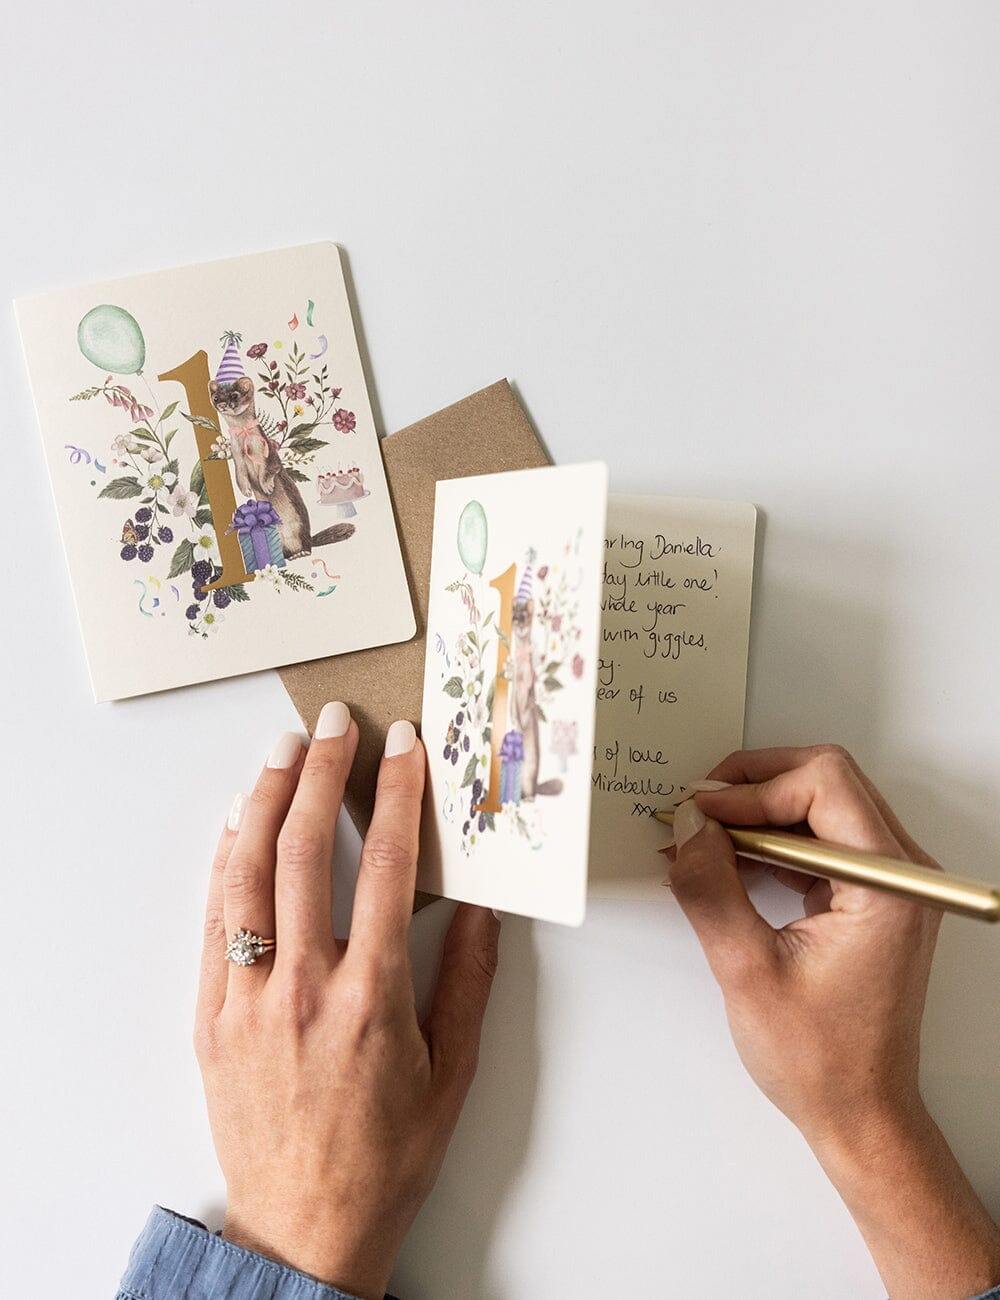 1
1
arling Daniella
day little one!
whole year
with giggles,
oy.
ear of us
of love
Mirabelle
xxx